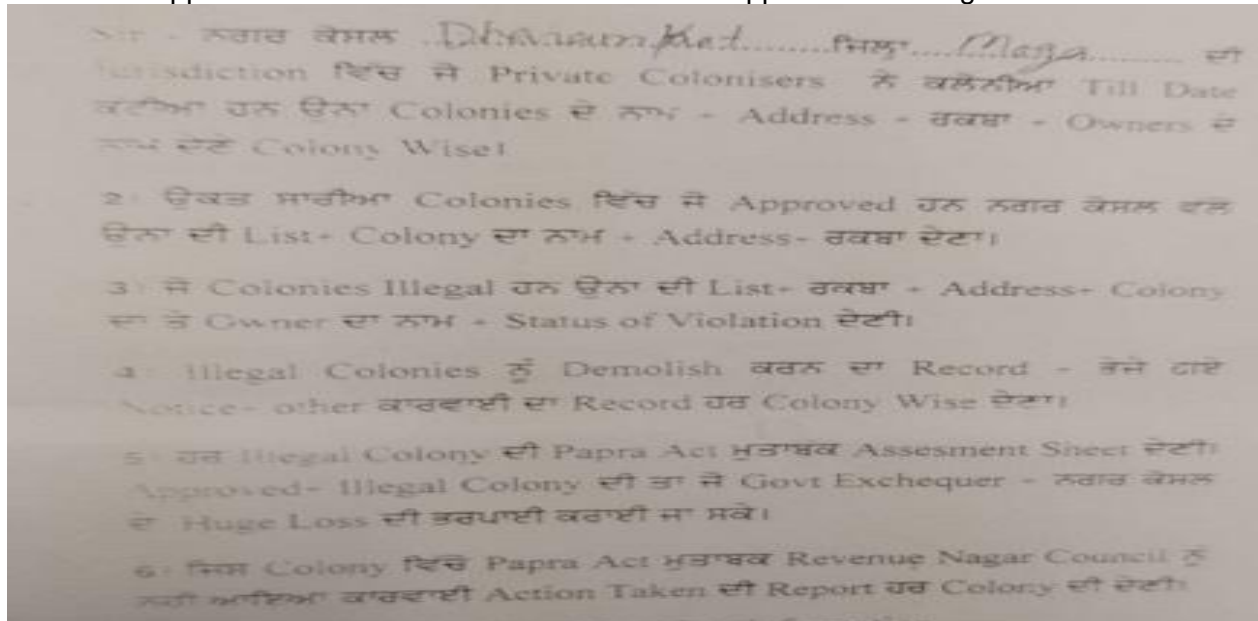 Sir - ਨਗਰ ਕੋਸਲ ..Dharamkot........ਜਿਲਾ....Moga.......... ਦੀ
Jurisdiction ਵਿੱਚ ਜੋ Private Colonisers ਨੇ ਕਲੋਨੀਆ Till Date
ਕਟੀਆ ਹਨ ਉਨਾ Colonies ਦੇ ਨਾਮ - Address - ਰਕਬਾ - Owners ਦੇ
ਨਾਮ ਦੇਣੇ Colony Wise।
2: ਉਕਤ ਸਾਰੀਆ Colonies ਵਿੱਚ ਜੋ Approved ਹਨ ਨਗਰ ਕੋਸਲ ਵਲ
ਉਨਾ ਦੀ List- Colony ਦਾ ਨਾਮ - Address- ਰਕਬਾ ਦੇਣਾ।
3: ਜੋ Colonies Illegal ਹਨ ਉਨਾ ਦੀ List- ਰਕਬਾ - Address- Colony
ਦਾ ਤੇ Owner ਦਾ ਨਾਮ - Status of Violation ਦੇਣੀ।
4: Illegal Colonies ਨੂੰ Demolish ਕਰਨ ਦਾ Record - ਭੇਜੇ ਗਏ
Notice- other ਕਾਰਵਾਈ ਦਾ Record ਹਰ Colony Wise ਦੇਣਾ।
5: ਹਰ Illegal Colony ਦੀ Papra Act ਮੁਤਾਬਕ Assesment Sheet ਦੇਣੀ।
Approved- Illegal Colony ਦੀ ਤਾ ਜੋ Govt Exchequer - ਨਗਰ ਕੋਸਲ
ਦੇ Huge Loss ਦੀ ਭਰਪਾਈ ਕਰਾਈ ਜਾ ਸਕੇ।
6: ਜਿਸ Colony ਵਿਚੋ Papra Act ਮੁਤਾਬਕ Revenue Nagar Council ਨੂੰ
ਨਹੀ ਆਇਆ ਕਾਰਵਾਈ Action Taken ਦੀ Report ਹਰ Colony ਦੀ ਦੇਣੀ।